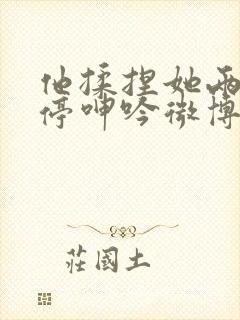 他揉捏她两
停呻吟微博
莊國土